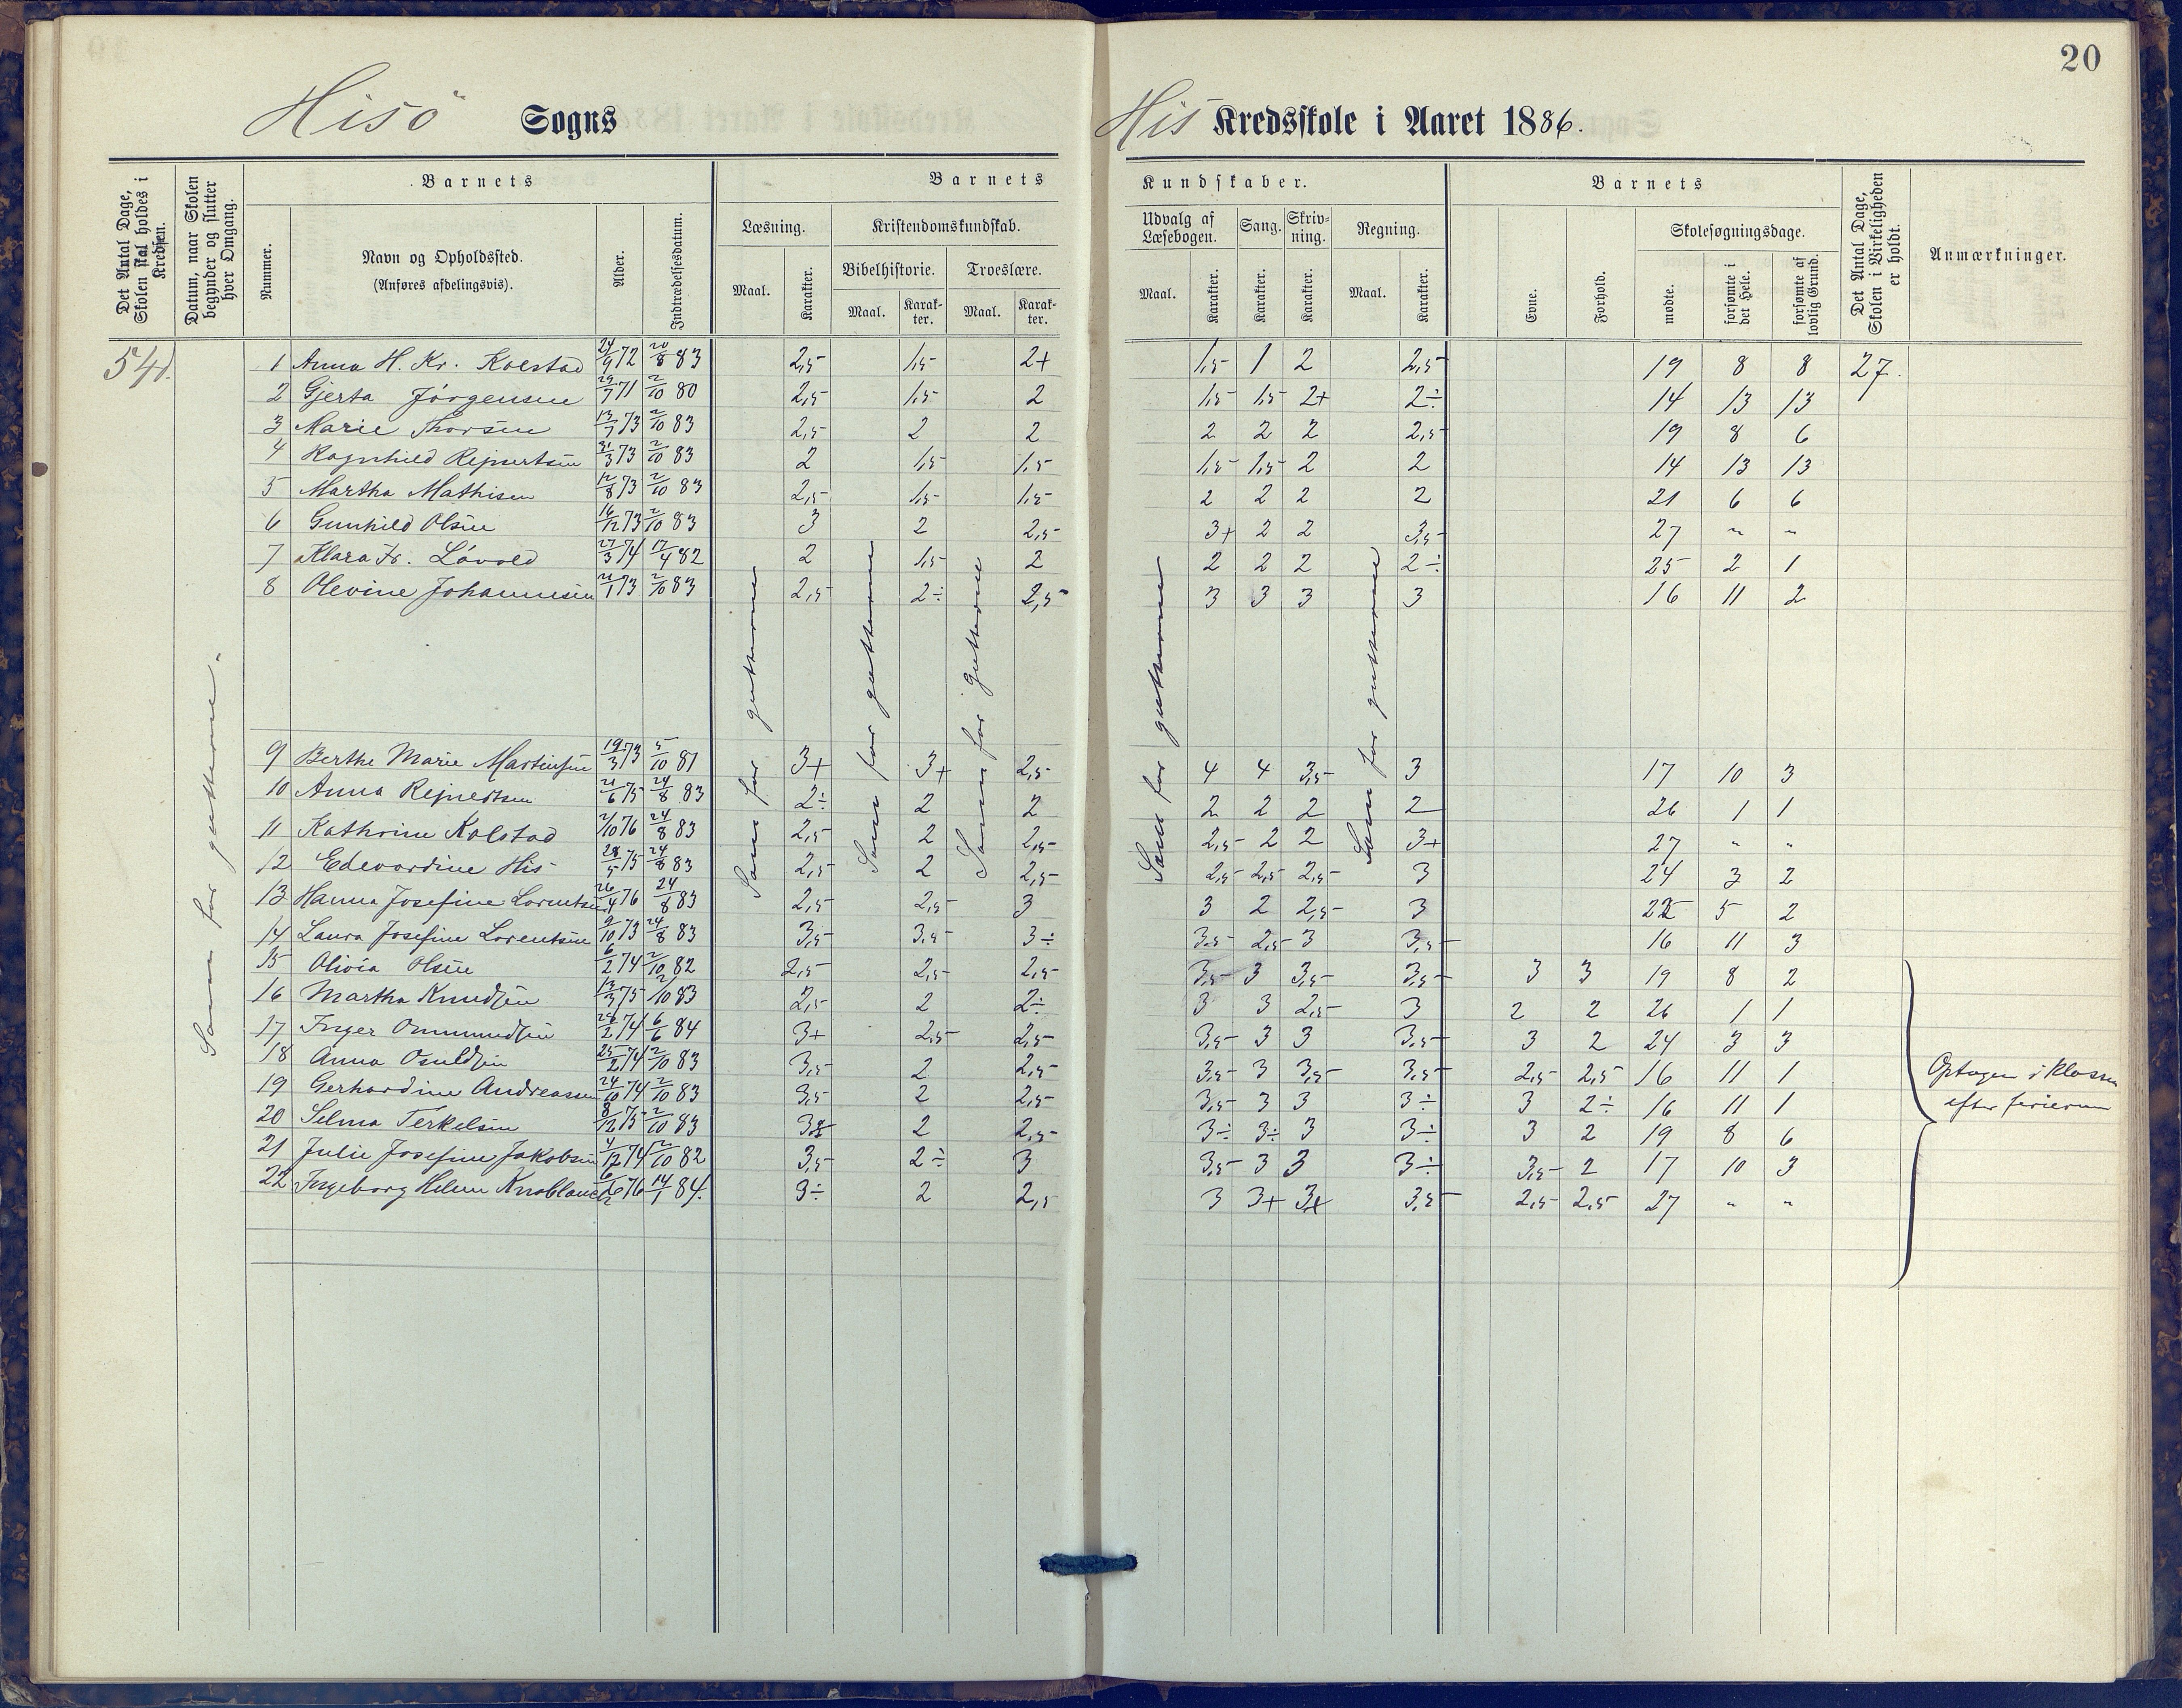 20
Hisö Sogns His Kredsskole i Aaret 1886.
Det Antal Dage, Skolen skal holdes i Kredsen.
Datum, naar Skolen begynder og slutter hver Omgang.
Barnets
Nummer.
Navn og Opholdssted.
(Anføres afdelingsvis).
Alder.
Indtrædelsesdatum.
Barnets Kundskaber.
Læsning.
Maal.
Karakter.
Kristendomskundskab.
Bibelhistorie.
Maal.
Karakter.
Troeslære.
Maal.
Karakter.
Udvalg af Læsebogen.
Maal.
Karakter.
Sang.
Karakter.
Skrivning.
Karakter.
Regning.
Maal.
Karakter.
Barnets
Evne.
Forhold.
Skolesøgningsdage.
mødte.
forsømte i det Hele.
forsømte af lovlig Grund.
Det Antal Dage, Skolen i Virkeligheden er holdt.
Anmærkninger.
54d.
Som for gutterne.
Som for gutterne
Som for gutterne
Som for gutterne
Som for gutterne
Som for gutterne
1 Anna H. Kr. Kolstad 24/9 72 20/8 83 2,5 1,5 2+ 1,5 1 2 2,5 19 8 8 27.
2 Gjerta Jörgensen 29/7 71 2/10 80 2,5 1,5 2 1,5 1,5 2+ 2÷ 14 13 13
3 Marie Thorsen 13/7 73 2/10 83 2,5 2 2 2 2 2 2,5 19 8 6
4 Ragnhild Rejnertsen 31/3 73 2/10 83 2 1,5 1,5 1,5 1,5 2 2 14 13 13
5 Martha Mathisen 12/8 73 2/10 83 2,5 1,5 1,5 2 2 2 2 21 6 6
6 Gunhild Olsen 16/12 73 2/10 83 3 2 2,5 3+ 2 2 3,5 27 " "
7 Klara Fr. Lövold 27/3 74 17/4 82 2 1,5 2 2 2 2 2÷ 25 2 1
8 Olevine Johannesen 21/1 73 2/10 83 2,5 2÷ 2,5 3 3 3 3 16 11 2
9 Berthe Marie Martinsen 19/3 73 5/10 81 3+ 3+ 2,5 4 4 3,5 3 17 10 3
10 Anna Rejnertsen 21/6 75 24/8 83 2÷ 2 2 2 2 2 2 26 1 1
11 Kathrine Kolstad 2/10 76 24/8 83 2,5 2 2,5 2,5 2 2 3+ 27 " "
12 Edevardine His 28/5 75 24/8 83 2,5 2 2,5 2,5 2,5 2,5 3 24 3 2
13 Hanna Josefine Lorentsen 26/4 76 24/8 83 2,5 2,5 3 3 2 2,5 3 22 5 2
14 Laura Josefine Lorentsen 9/10 73 24/8 83 3,5 3,5 3÷ 3,5 2,5 3 3,5 16 11 3
15 Olivia Olsen 6/2 74 2/10 82 2,5 2,5 2,5 3,5 3 3,5 3,5 3 3 19 8 2
16 Martha Knudsen 13/3 75 2/10 83 2,5 2 2÷ 3 3 2,5 3 2 2 26 1 1
17 Inger Ommundsen 28/2 74 6/6 84 3+ 2,5 2,5 3,5 3 3 3,5 3 2 24 3 3
18 Anna Osuldsen 25/2 74 2/10 83 3,5 2 2,5 3,5 3 3,5 3,5 2,5 2,5 16 11 1
19 Gerhardine Andreassen 24/10 74 2/10 83 3,5 2 2,5 3,5 3 3 3÷ 3 2÷ 16 11 1
20 Selma Terkelsen 8/12 75 2/10 83 2 2,5 3÷ 3÷ 3 3÷ 3 2 19 8 6
21 Julie Josefine Jakobsen 4/12 74 2/10 82 3,5 2÷ 3 3,5 3 3 3÷ 3,5 2 17 10 3
22 Ingeborg Helene Knoblauch 76 14/1 84. 3÷ 2 2,5 3 3+ 3+ 3,5 2,5 2,5 27 " "
Optagen i klassen
efter ferierne